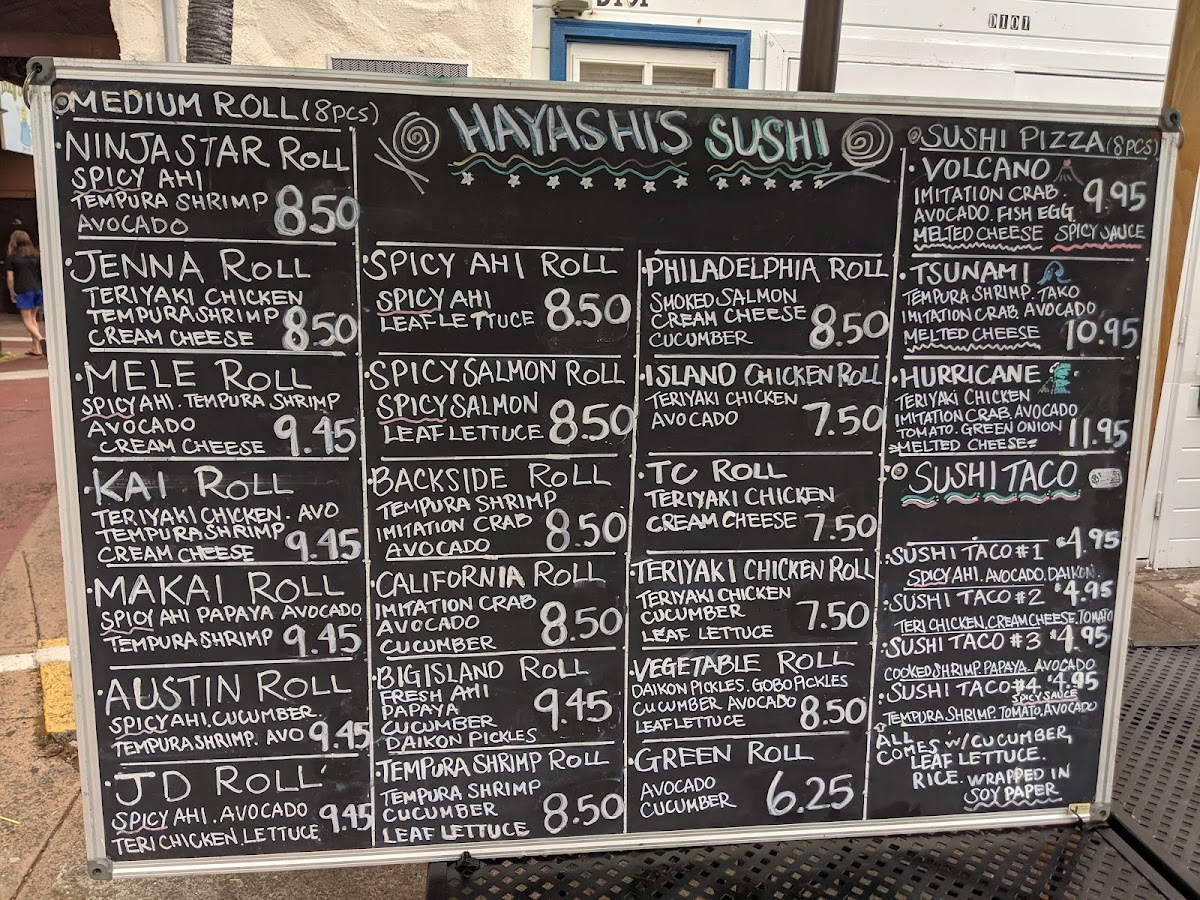 D101
D101
HAYASHI'S SUSHI
MEDIUM ROLL (8PCS)
NINJA STAR ROLL
SPICY AHI
TEMPURA SHRIMP
AVOCADO
8.50
JENNA ROLL
TERIYAKI CHICKEN
TEMPURA SHRIMP
CREAM CHEESE
8.50
MELE ROLL
SPICY AHI. TEMPURA SHRIMP
AVOCADO
CREAM CHEESE
9.45
KAI ROLL
TERIYAKI CHICKEN. AVO
TEMPURA SHRIMP
CREAM CHEESE
9.45
MAKAI ROLL
SPICY AHI PAPAYA AVOCADO
TEMPURA SHRIMP
9.45
AUSTIN ROLL
SPICY AHI. CUCUMBER.
TEMPURA SHRIMP. AVO
9.45
JD ROLL
SPICY AHI. AVOCADO
TERI CHICKEN. LETTUCE
9.45
SPICY AHI ROLL
SPICY AHI
LEAF LETTUCE
8.50
SPICY SALMON ROLL
SPICY SALMON
LEAF LETTUCE
8.50
BACKSIDE ROLL
TEMPURA SHRIMP
IMITATION CRAB
AVOCADO
8.50
CALIFORNIA ROLL
IMITATION CRAB
AVOCADO
CUCUMBER
8.50
BIG ISLAND ROLL
FRESH AHI
PAPAYA
CUCUMBER
DAIKON PICKLES
9.45
TEMPURA SHRIMP ROLL
TEMPURA SHRIMP
CUCUMBER
LEAF LETTUCE
8.50
PHILADELPHIA ROLL
SMOKED SALMON
CREAM CHEESE
CUCUMBER
8.50
ISLAND CHICKEN ROLL
TERIYAKI CHICKEN
AVOCADO
7.50
TC ROLL
TERIYAKI CHICKEN
CREAM CHEESE
7.50
TERIYAKI CHICKEN ROLL
TERIYAKI CHICKEN
CUCUMBER
LEAF LETTUCE
7.50
VEGETABLE ROLL
DAIKON PICKLES. GOBO PICKLES
CUCUMBER AVOCADO
LEAF LETTUCE
8.50
GREEN ROLL
AVOCADO
CUCUMBER
6.25
SUSHI PIZZA (8PCS)
VOLCANO
IMITATION CRAB.
AVOCADO. FISH EGG
MELTED CHEESE SPICY SAUCE
9.95
TSUNAMI
TEMPURA SHRIMP. TAKO
IMITATION CRAB, AVOCADO
MELTED CHEESE
10.95
HURRICANE
TERIYAKI CHICKEN
IMITATION CRAB, AVOCADO
TOMATO. GREEN ONION
MELTED CHEESE
11.95
SUSHI TACO
SUSHI TACO #1 $4.95
SPICY AHI. AVOCADO. DAIKON.
SUSHI TACO #2 $4.95
TERI CHICKEN, CREAM CHEESE, TOMATO
SUSHI TACO #3 $4.95
COOKED SHRIMP. PAPAYA. AVOCADO
SUSHI TACO #4 $4.95
SPICY SAUCE
TEMPURA SHRIMP. TOMATO, AVOCADO
ALL
COMES W/ CUCUMBER,
LEAF LETTUCE.
RICE. WRAPPED IN
SOY PAPER